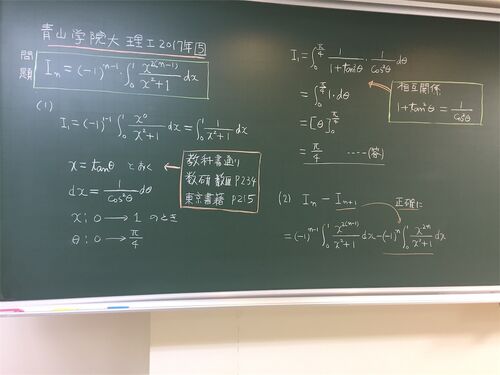 青山学院大 理工 2017年 5
問題 Iₙ = (-1)ⁿ⁻¹・∫₀¹ x²⁽ⁿ⁻¹⁾/(x²+1) dx
(1)
I₁ = (-1)¹⁻¹∫₀¹ x⁰/(x²+1) dx = ∫₀¹ 1/(x²+1) dx
x = tanθ とおく
dx = 1/cos²θ dθ
x : 0 → 1 のとき
θ : 0 → π/4
教科書通り
数研 数Ⅲ P234
東京書籍 P215
I₁ = ∫₀^(π/4) 1/(1+tan²θ)・1/cos²θ dθ
= ∫₀^(π/4) 1・dθ
= [θ]₀^(π/4)
= π/4 ……(答)
相互関係
1+tan²θ = 1/cos²θ
(2) Iₙ - Iₙ₊₁
正確に
= (-1)ⁿ⁻¹∫₀¹ x²⁽ⁿ⁻¹⁾/(x²+1) dx - (-1)ⁿ∫₀¹ x²ⁿ/(x²+1) dx